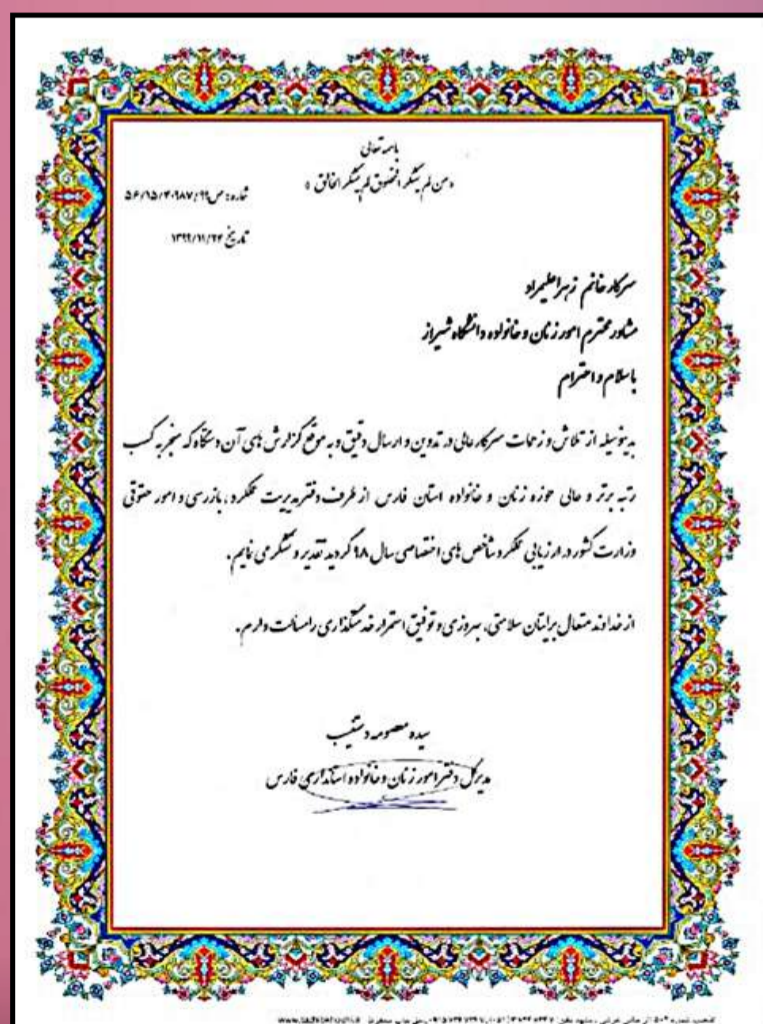 باسمه تعالی
«من لم یشکر المخلوق لم یشکر الخالق»
شماره: ص/۵۶/۱۵/۴۰۹۸۷/۹۹
تاریخ ۱۳۹۹/۱۱/۲۴
سرکار خانم زهرا علیمراد
مشاور محترم امور زنان و خانواده دانشگاه شیراز
باسلام و احترام
بدینوسیله از تلاش و زحمات سرکارعالی در تدوین و ارسال دقیق و به موقع گزارش های آن دستگاه که منجر به کسب
رتبه برتر و عالی حوزه زنان و خانواده استان فارس از طرف دفتر مدیریت عملکرد، بازرسی و امور حقوقی
وزارت کشور در ارزیابی عملکرد شاخص های اختصاصی سال ۹۸ گردید تقدیر و تشکر می نمایم.
از خداوند متعال برایتان سلامتی، بهروزی و توفیق استمرار خدمتگذاری را مسألت دارم.
سیده معصومه دستغیب
مدیرکل دفتر امور زنان و خانواده استانداری فارس